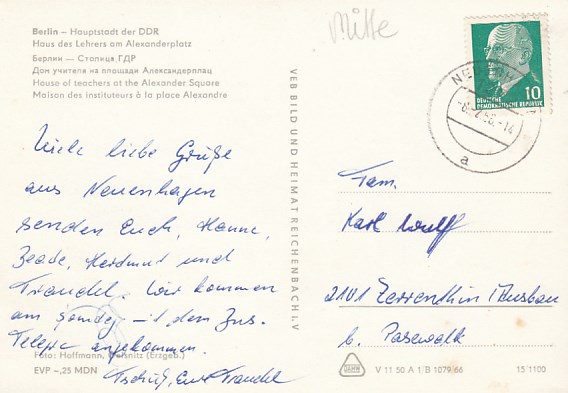 Berlin – Hauptstadt der DDR
Haus des Lehrers am Alexanderplatz
Берлин — Столица ГДР
Дом учителя на площади Александерплац
House of teachers at the Alexander Square
Maison des instituteurs à la place Alexandre
Mitte
10
DEUTSCHE
DEMOKRATISCHE REPUBLIK
a
VEB BILD UND HEIMAT REICHENBACH I. V
Viele liebe Grüße
aus Neuenhagen
senden Euch, Hanne,
und
Traudel. Wir kommen
am
angekommen.
Traudel
Foto: Hoffmann, (Erzgeb.)
EVP –,25 MDN
Fam.
Karl Wulff
2101 Zerrenthin/Ausbau
b. Pasewalk
V 11 50 A 1/B 1079 66
15/1100